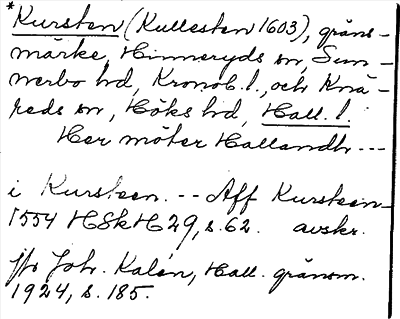 *Kursten (Kullesten 1603), gräns-
märke, Hinneryds sn, Sun-
nerbo hd, Kronob. l., och Knä-
reds sn, Höks hd, Hall. l.
Her möter Hallandh ---
i Kursteen. -- Aff Kursteen
1554 HSkH 29, s. 62. avskr.
Jfr Joh. Kalén, Hall. gränsm.
1924, s. 185.